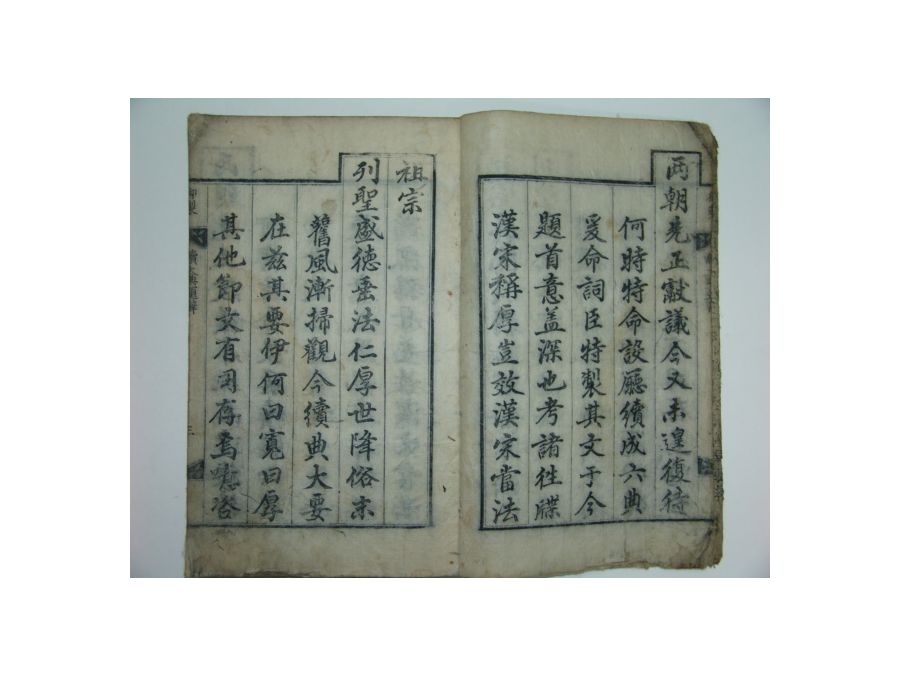 兩朝先正獻議今又未遑復待
何時特命設廳續成六典
爰命詞臣特製其文于今
題首意盖深也考諸往牒
漢宋稱厚豈效漢宋當法
祖宗
列聖盛德垂法仁厚世降俗末
舊風漸掃觀今續典大要
在兹其要伊何曰寬曰厚
其他節文有因存焉噫咨
御製
三